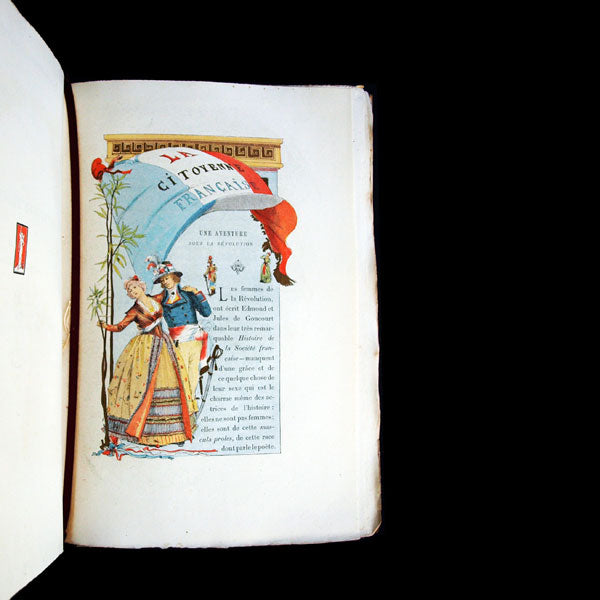 LA
CITOYENNE
FRANÇAISE
UNE AVENTURE
SOUS LA RÉVOLUTION
Les femmes de
la Révolution,
ont écrit Edmond et
Jules de Goncourt
dans leur très remar-
quable Histoire de
la Société fran-
çaise — manquent
d'une grâce et de
ce quelque chose de
leur sexe qui est le
charme même des ac-
trices de l'histoire :
elles ne sont pas femmes ;
elles sont de cette mas-
cula proles, de cette race
dont parle le poète.